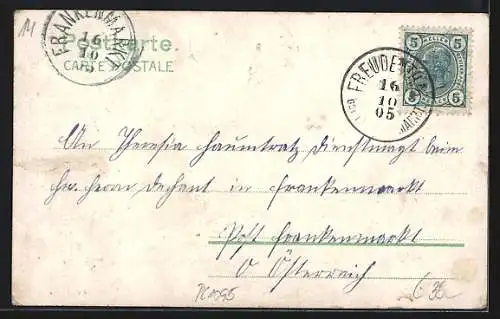 M
FRANKENMARKT
16
10
Postkarte.
CARTE POSTALE
5 HELLER 5
5 5
FREUDENTHAL
16
10
05
An Theresia Haumtratz Dienstmagt beim
hr. Herrn Dechant in Frankenmarkt
Post Frankenmarkt
O Österreich